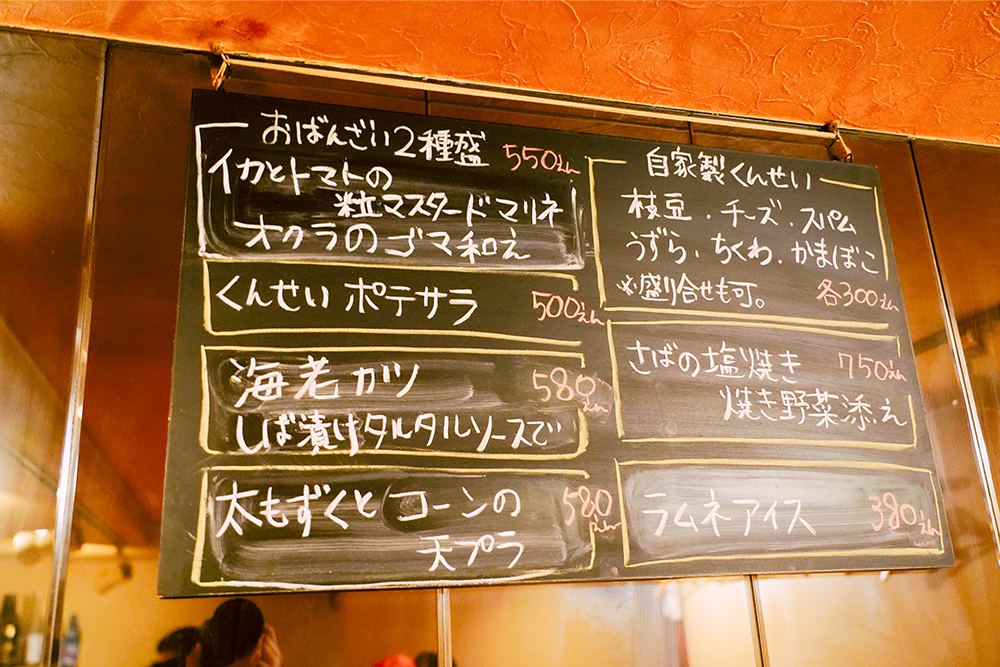 おばんざい2種盛 550えん
イカとトマトの
粒マスタードマリネ
オクラのゴマ和え
くんせい ポテサラ 500えん
海老カツ 580えん
しば漬けタルタルソースで
太もずくと コーンの 580えん
天プラ
自家製くんせい
枝豆・チーズ・スパム
うずら・ちくわ・かまぼこ
※盛り合せも可。 各300えん
さばの塩焼き 750えん
焼き野菜添え
ラムネアイス 380えん